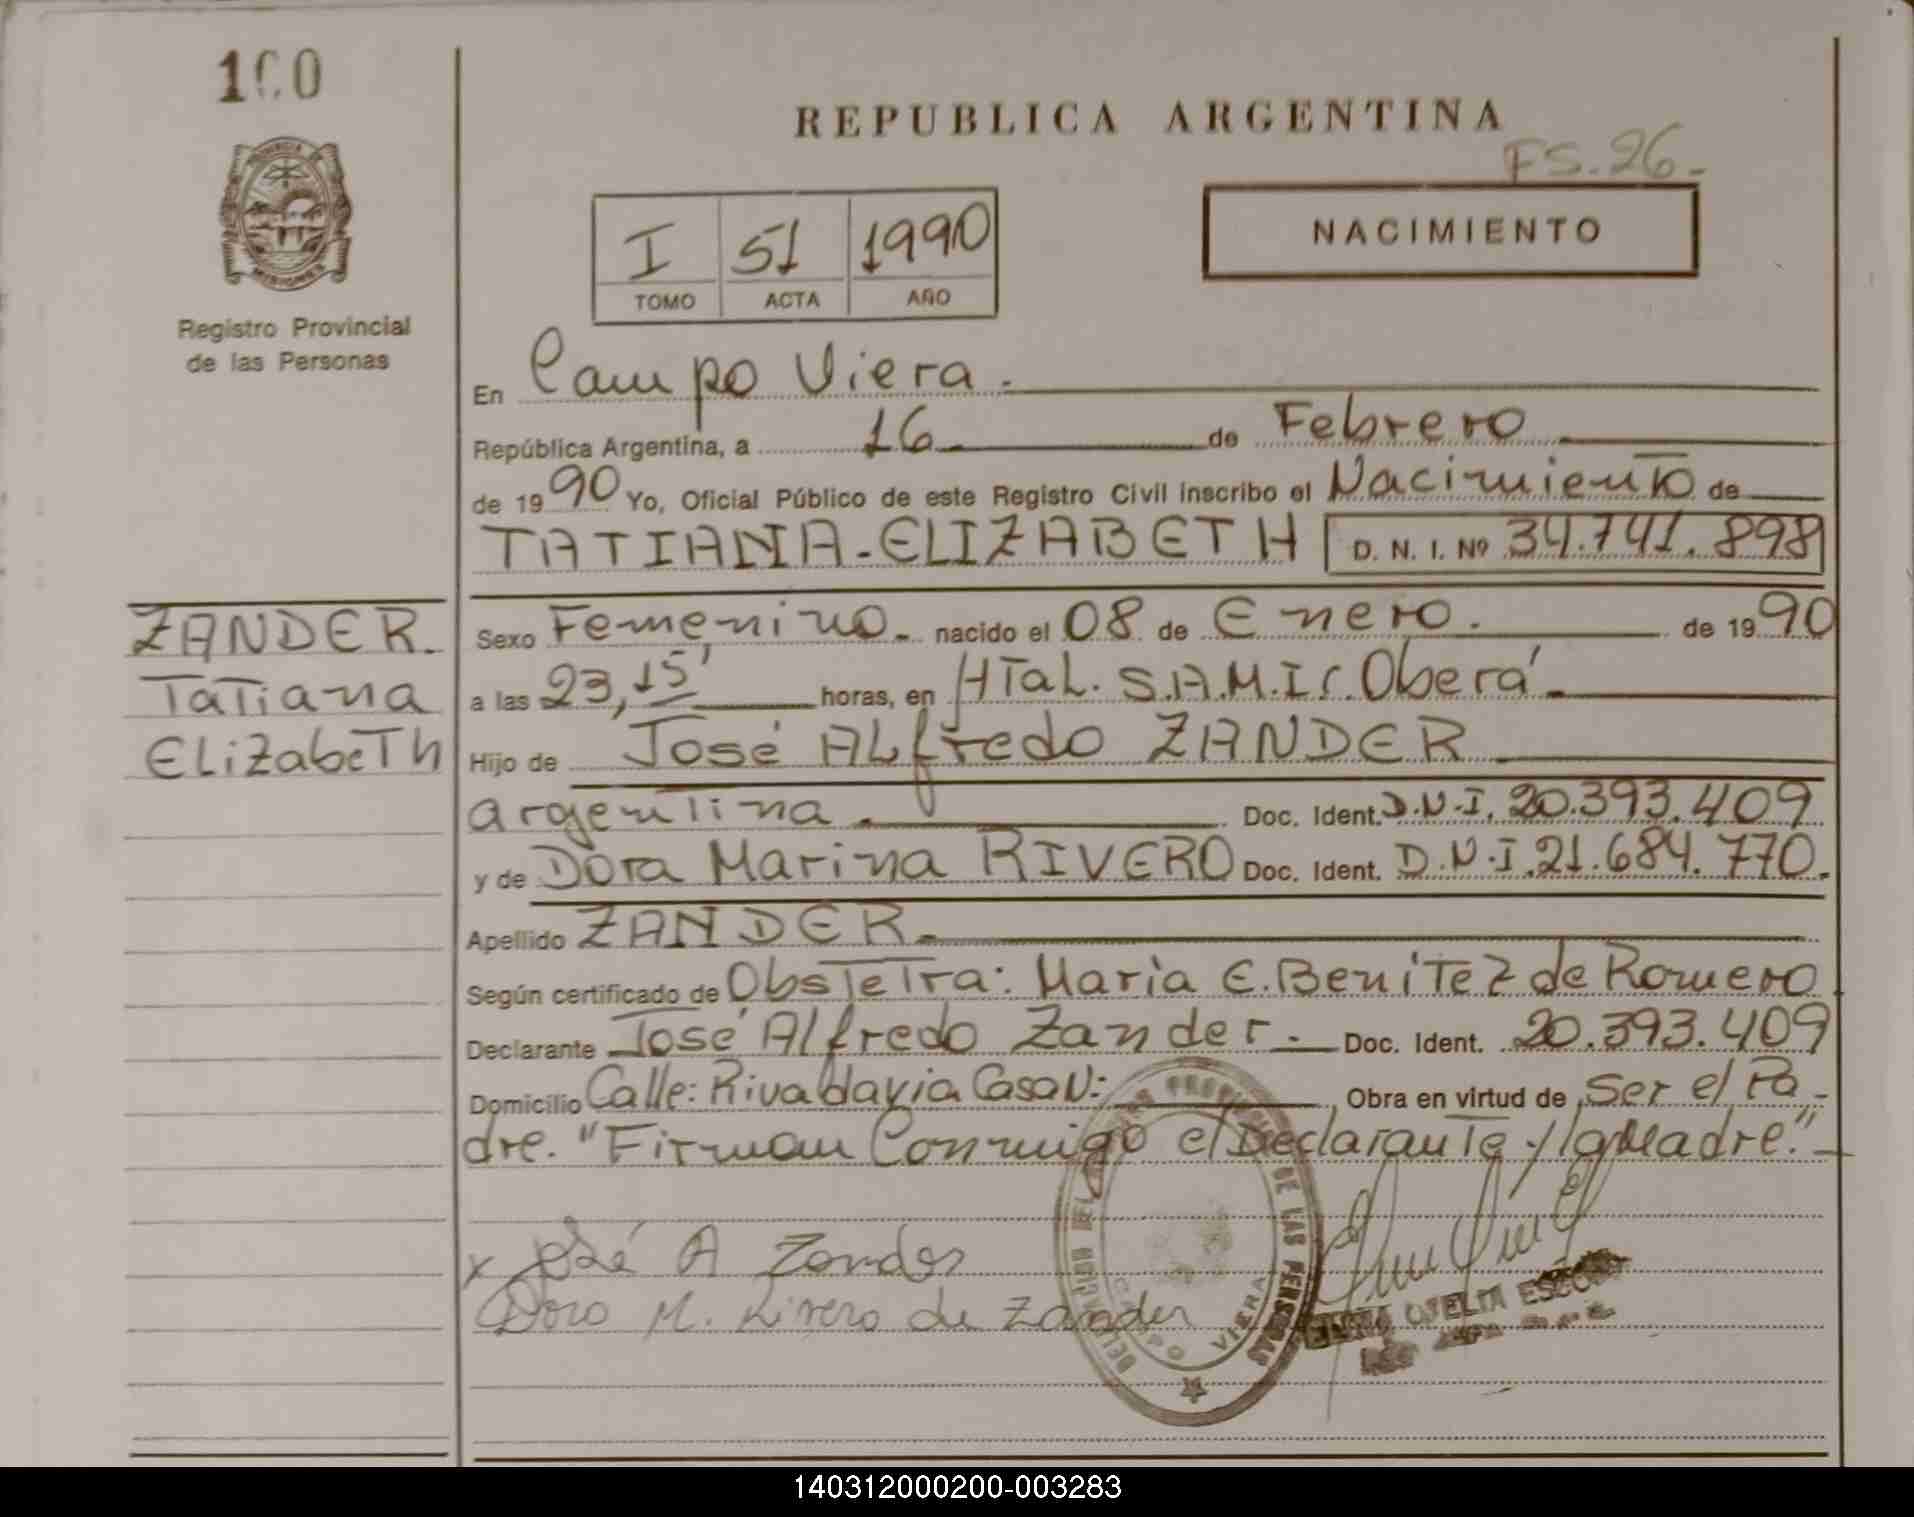 100
REPUBLICA ARGENTINA
FS. 26.-
I 51 1990
TOMO ACTA AÑO
NACIMIENTO
Registro Provincial
de las Personas
En Campo Viera.
República Argentina, a 16 de Febrero
de 1990 Yo, Oficial Público de este Registro Civil inscribo el Nacimiento de
TATIANA-ELIZABETH D. N. I. Nº 34.741.898
ZANDER.
Tatiana
Elizabeth
Sexo Femenino. nacido el 08 de Enero. de 1990
a las 23,15' horas, en HTaL. S.A.M.I.C. Oberá.
Hijo de José ALfredo ZANDER
argentina. Doc. Ident. D.N.I. 20.393.409
y de Dora Marina RIVERO Doc. Ident. D.N.I. 21.684.770.
Apellido ZANDER.
Según certificado de Obstetra: María E. Benitez de Romero
Declarante José Alfredo Zander.- Doc. Ident. 20.393.409
Domicilio Calle: Rivaldavia Casa N: Obra en virtud de Ser el Pa-
dre. "Firman Conmigo el Declarante y la Madre."-
x José A Zander
Dora M. Rivero de Zander
DE LAS PERSONAS
CAMPO VIERA
140312000200-003283